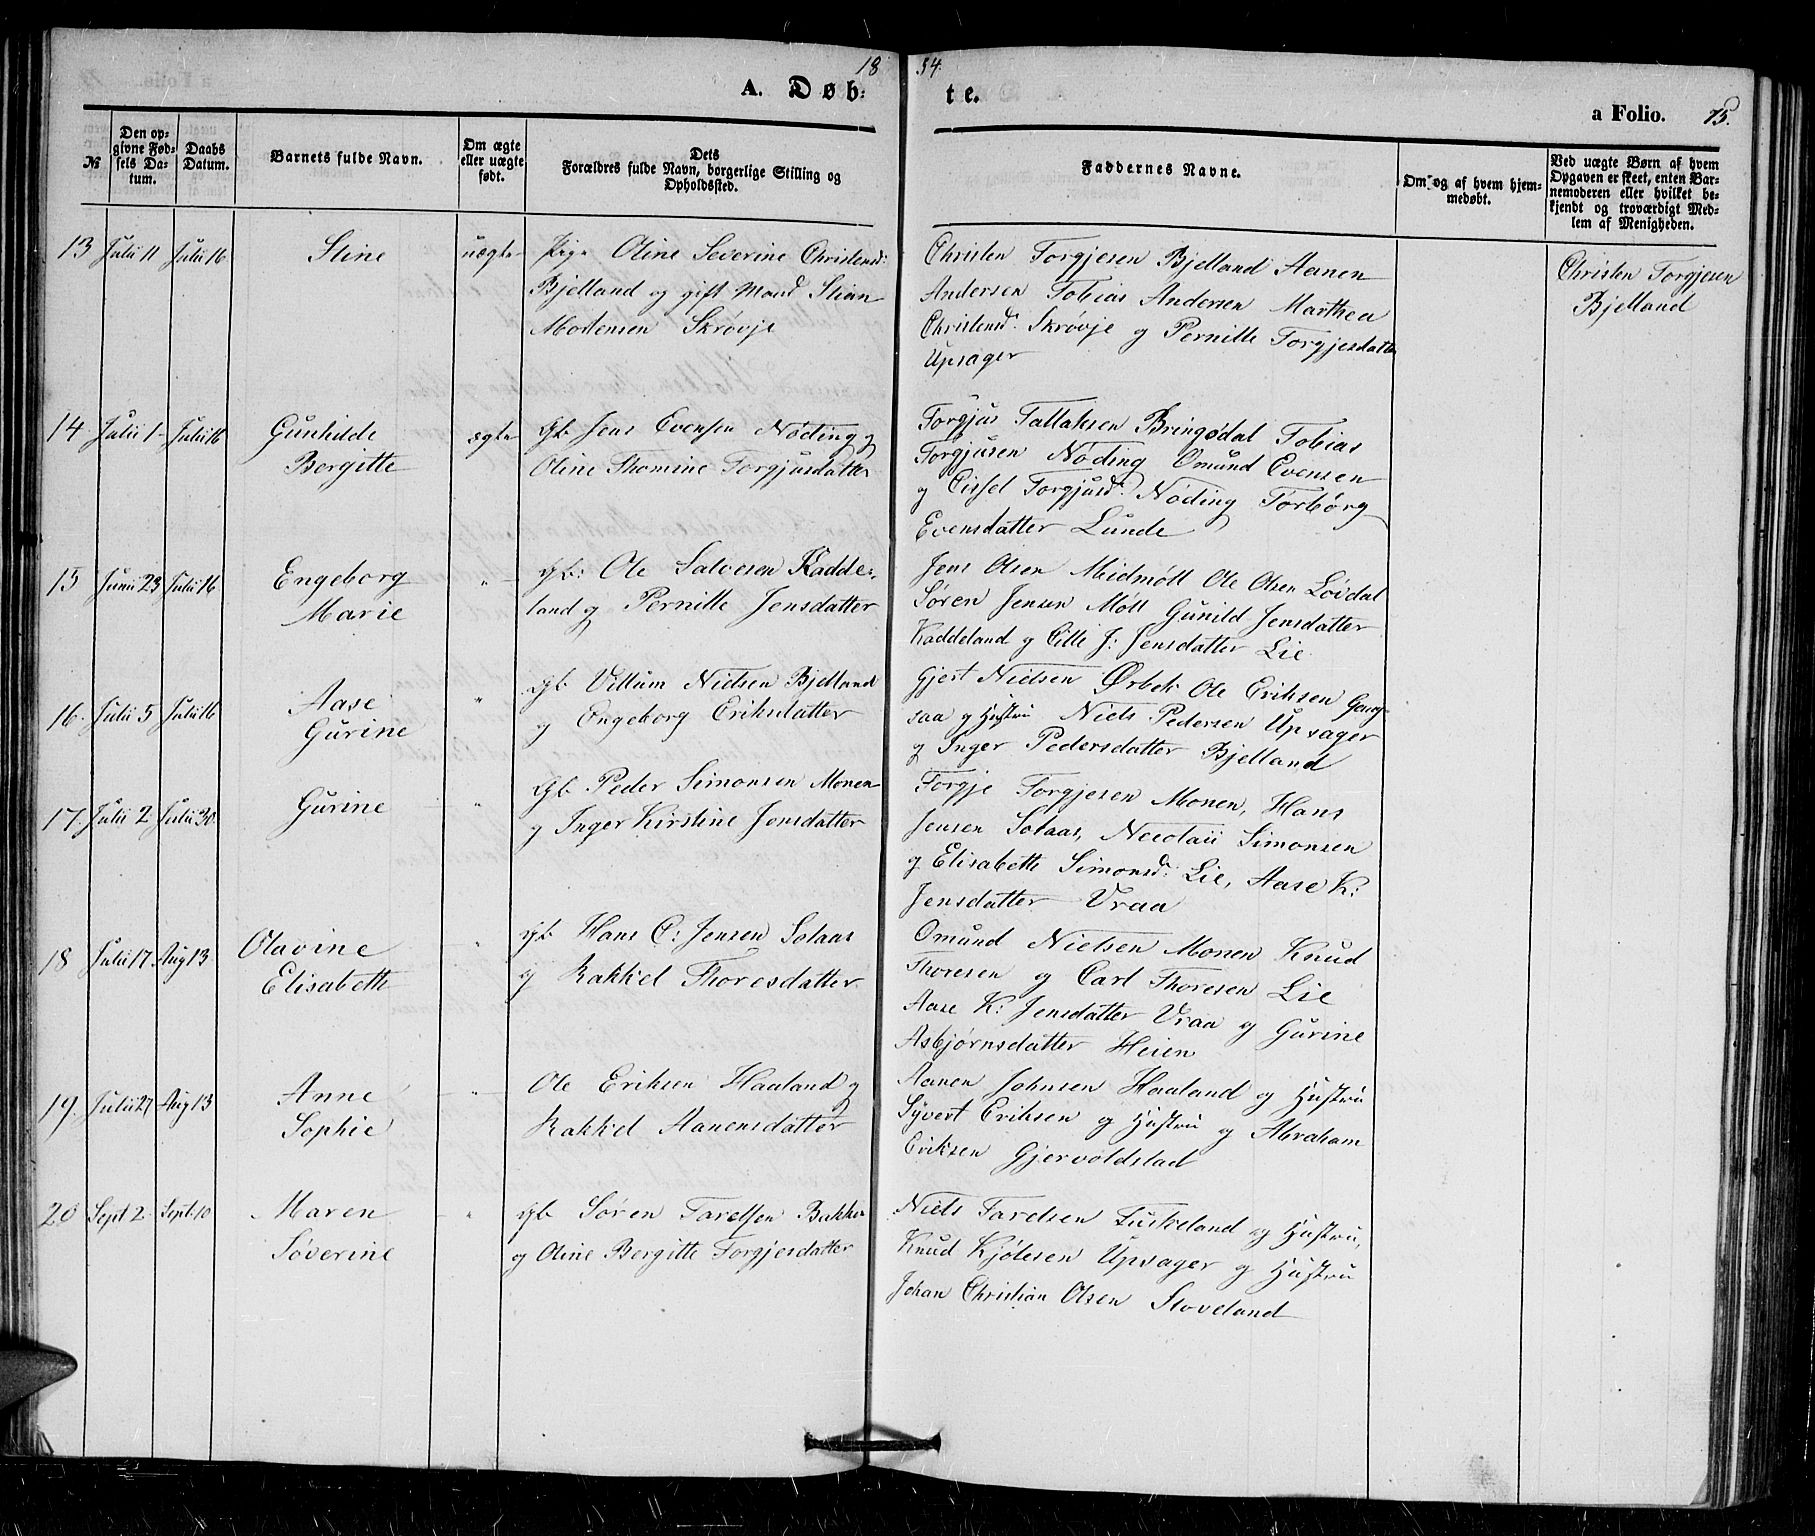 1854.
A. Døb: te.
a Folio. 75.
№
Den op-
givne Fød-
sels Da-
tum.
Daabs
Datum.
Barnets fulde Navn.
Om ægte
eller uægte
født.
Dets
Forældres fulde Navn, borgerlige Stilling og
Opholdssted.
Faddernes Navne.
Om og af hvem hjem-
medøbt.
Ved uægte Børn af hvem
Opgaven er skeet, enten Bar-
nemoderen eller hvilket be-
kjendt og troværdigt Med-
lem af Menigheden.
13 Julii 11 Julii 16 Stine uægte
Pige Oline Severine Christensd:
Bjelland og gift Mand Stian
Mortensen Skrøvje
Christen Torgjesen Bjelland Aanen
Andersen Tobias Andersen Marthea
Christensd: Skrøvje og Pernille Torgjesdatter
Upsager
Christen Torgjesen
Bjelland
14. Julii 1 Julii 16 Gunhilde
Bergitte
ægte
Gb. Jens Evensen Nøding og
Oline Thomine Torgjusdatter
Torgjus Tallaksen Bringsdal Tobias
Torgjusen Nøding Omund Evensen
og Cissel Torgjusd: Nøding Torborg
Evensdatter Lunde
15 Junii 23 Julii 16 Engeborg
Marie
"
gb: Ole Salvesen Kadde-
land og Pernille Jensdatter
Jens Olsen Meidmøll Ole Olsen Løvdal
Søren Jensen Møll Gunild Jensdatter
Kaddeland og Cille J: Jensdatter Lie
16. Julii 5 Julii 16 Aase
Gurine
"
Gb. Villum Nielsen Bjelland
og Engeborg Eriksdatter
Gjert Nielsen Ørbek Ole Eriksen
saa og Hustru Niels Pedersen Upsager
og Inger Pedersdatter Bjelland
17. Julii 2. Julii 30. Gurine "
Gb. Peder Simonsen Monen
og Inger Kirstine Jensdatter
Torgje Torgjesen Monen, Hans
Jensen Solaas, Nicolaii Simonsen
og Elisabeth Simonsd: Lie, Aase K:
Jensdatter Vraa
18 Julii 17. Aug 13 Olavine
Elisabeth
"
gb. Hans C: Jensen Solaas
og Rakkel Thoresdatter
Omund Nielsen Monen Knud
Thoresen og Carl Thoresen Lie
Aase K: Jensdatter Vraa og Gurine
Asbjørnsdatter Heien
19. Julii 27 Aug 13 Anne
Sophie
"
Ole Eriksen Haaland og
Rakkel Aanensdatter
Aanen Johnsen Haaland og Hustru
Syvert Eriksen og Hustru og Abraham
Eriksen Gjervoldstad
20 Sept 2 Sept. 10 Maren
Søverine
"
gb Søren Tarelsen Bakken
og Oline Bergitte Torgjesdatter
Niels Tarelsen Fuskeland og Hustru,
Knud Kjølesen Upsager og Hustru
Johan Christian Olsen Stoveland